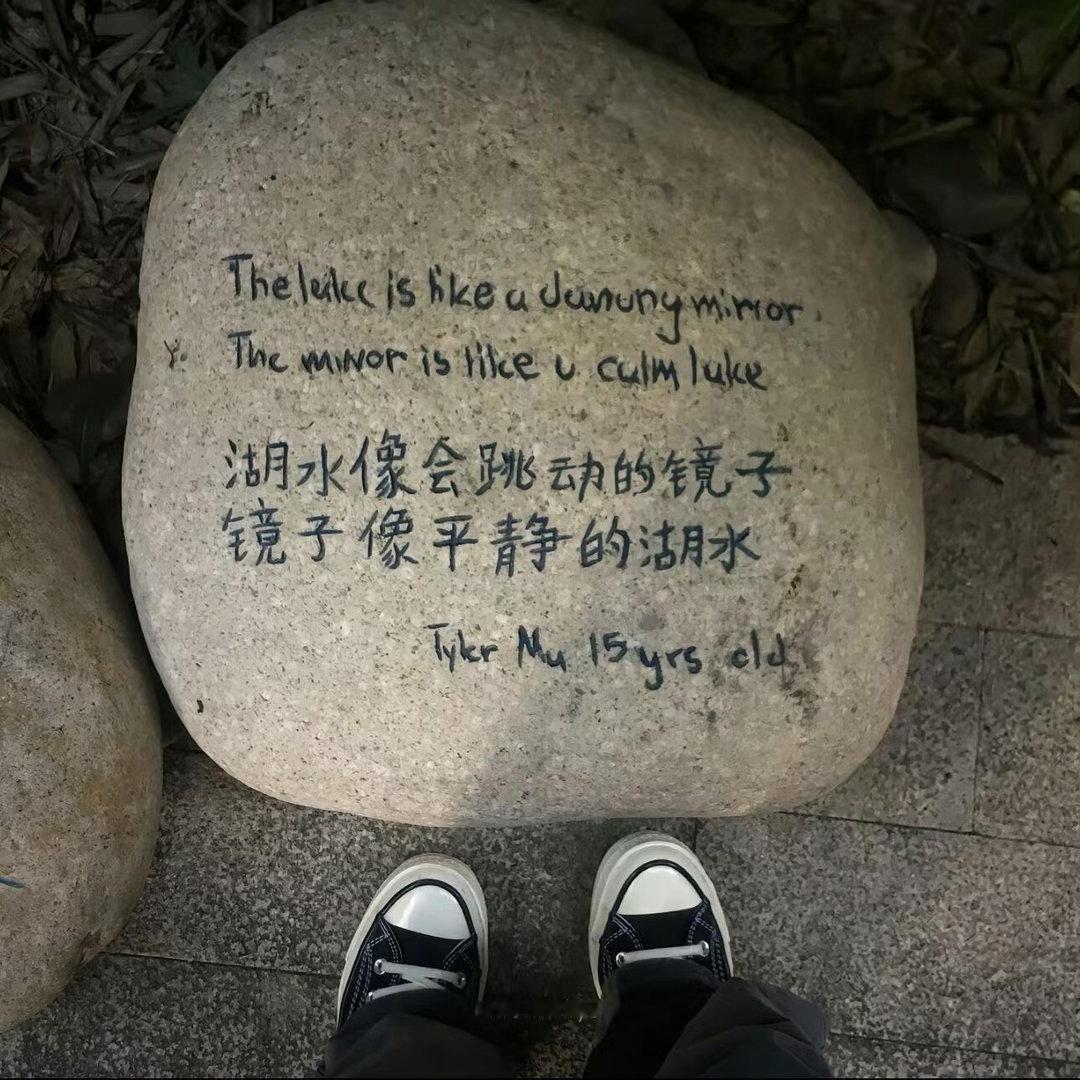 The lake is like a dancing mirror.
The mirror is like a calm lake
湖水像会跳动的镜子
镜子像平静的湖水
Tyler Mu 15 yrs old